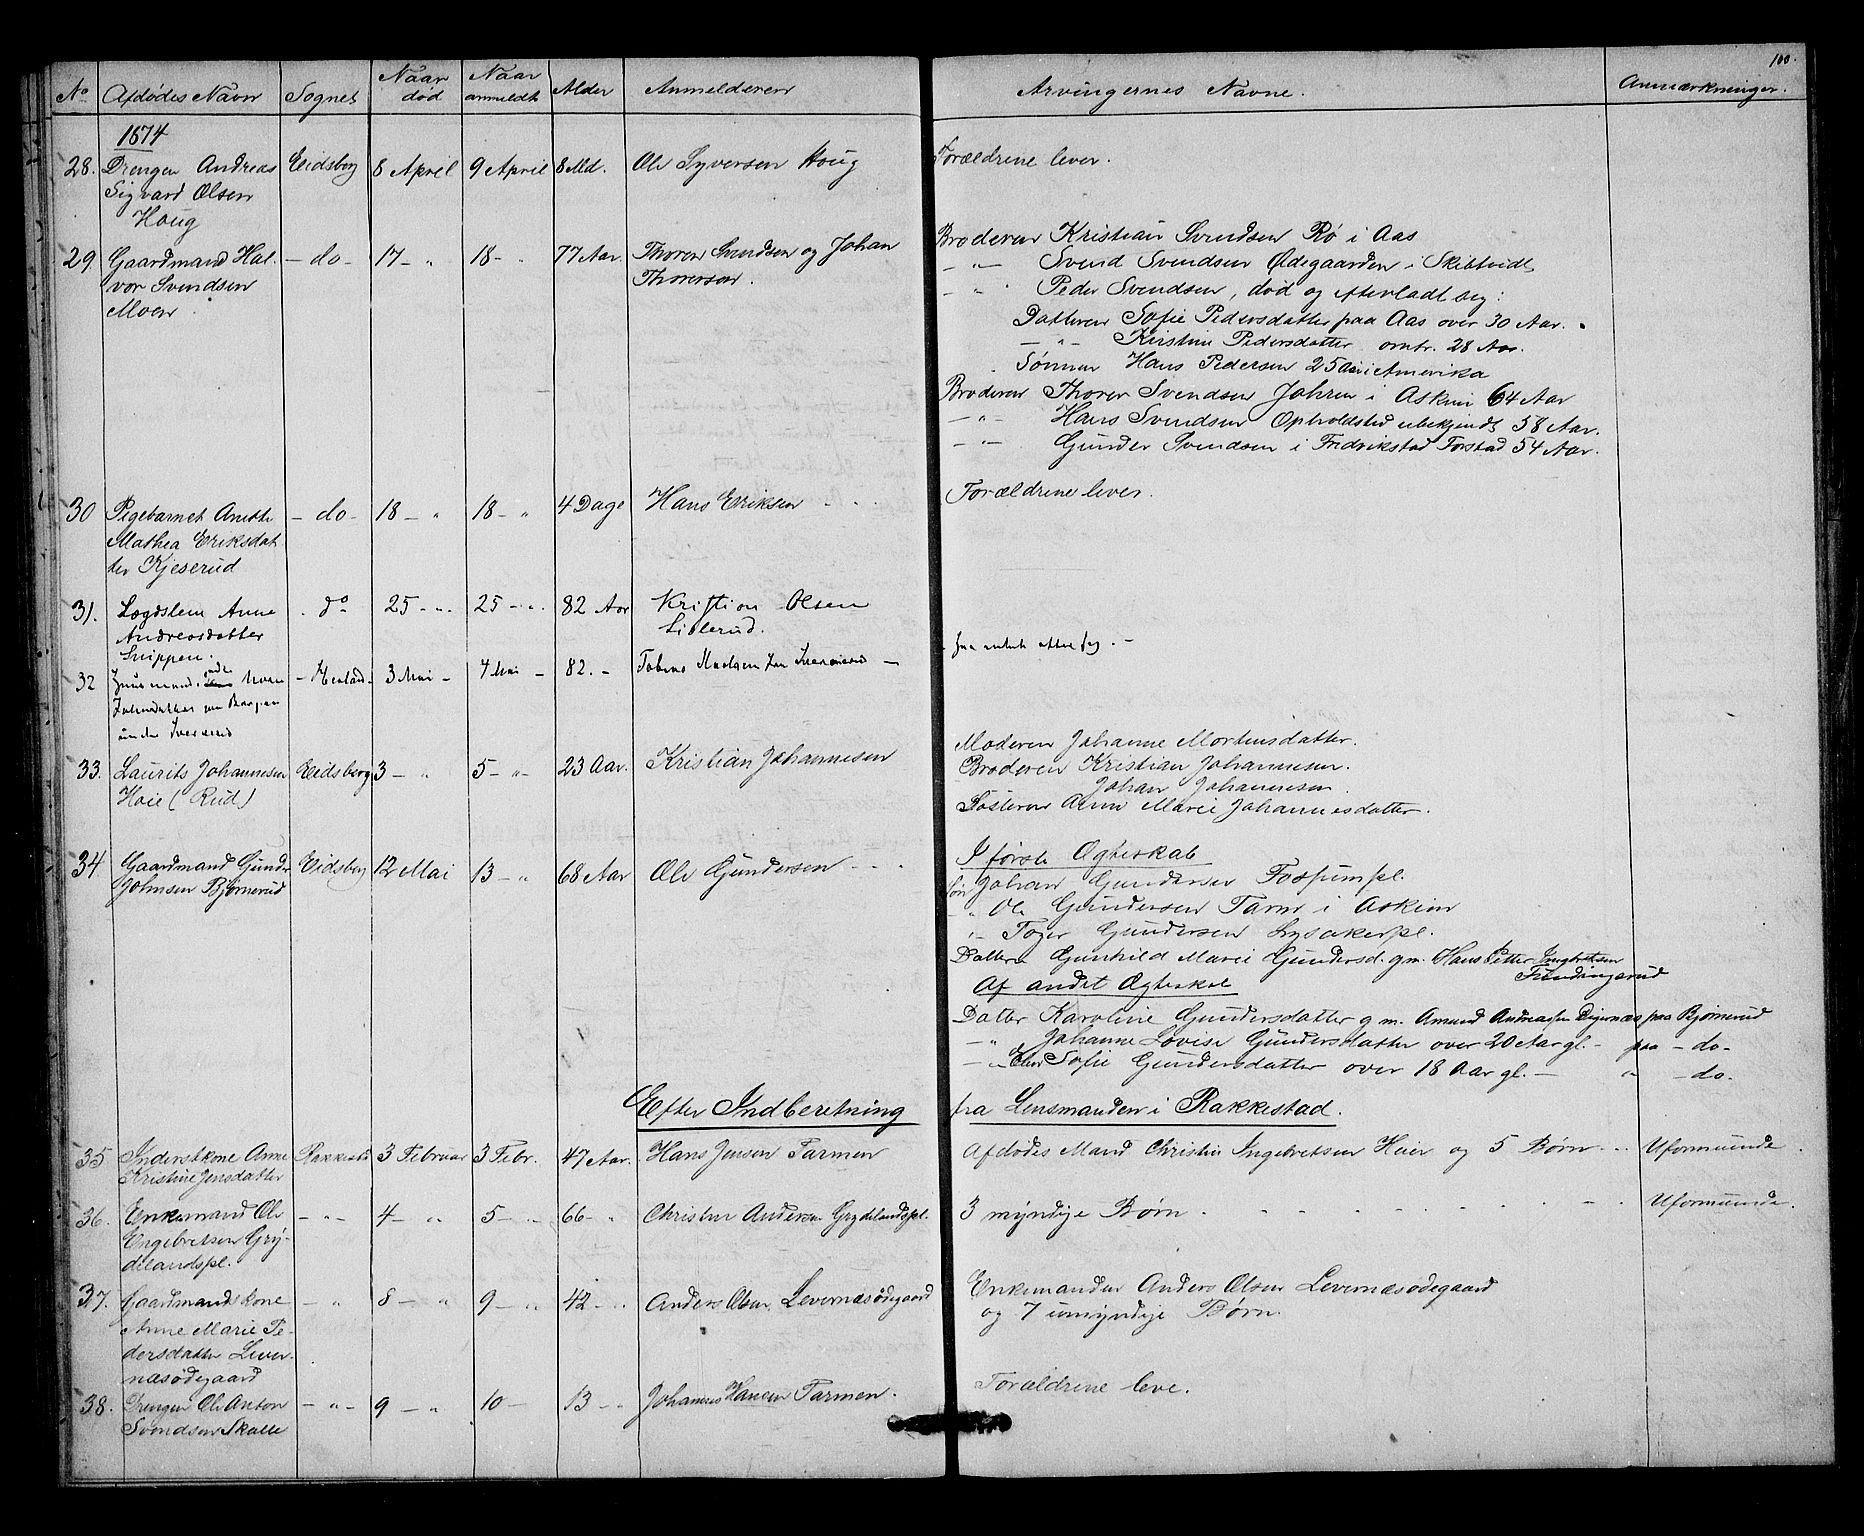 100.
No Afdødes Navn Sognet Naar død Naar anmeldt Alder Anmelderen Arvingernes Navne. Anmærkninger.
1874
28. Drengen Andreas Eidsberg 8 April 9 April 8 Md. Ole Syversen Houg Forældrene lever.
Sigvard Olsen
Houg
29 Gaardmand Hal- - do - 17 - " 18 - " 77 Aar. Thorer Svendsen og Johan Broderen Kristian Svendsen Rø i Aas
vor Svendsen Thoresen. - " - Svend Svendsen Ødegaarden i Skibtvedt
Moen - " - Peder Svendsen, død og efterladt sig:
Datteren Sofie Pedersdatter paa Aas over 30 Aar.
- " - Kirstine Pedersdatter omtr. 28 Aar.
Sønnen Hans Pedersen 25 Aar i Amerika
Broderen Thorer Svendsen Johren i Askim 64 Aar
- " - Hans Svendsen Opholdsted ubekjendt 58 Aar.
- " - Gunder Svendsen i Fredrikstad Forstad 54 Aar.
30 Pigebarnet Anethe - do - 18 - " 18 - " 4 Dage Hans Eriksen Forældrene lever.
Mathea Eriksdat
ter Kjeserud
31. Lægdslem Anne do 25 - " 25 - " 82 Aar Kristian Olsen
Andreasdatter Liblerud.
Snippen.
32 3 Mai - 4 Mai - 82. - Tobias
under
33. Laurits Johannesen Eidsberg 3 - " 5 - " 23 Aar. Kristian Johannesen Moderen Johanne Mortensdatter.
Haie (Rud) Broderen Kristian Johannesen.
Johan Johannesen.
Søsteren Anne Marie Johannesdatter.
34 Gaardmand Gunder Eidsberg 12 Mai 13 - " 68 Aar Ole Gundersen I første Ægteskab
Johnsen Bjørnerud Søn Johan Gundersen Fosumpl.
" Ole Gundersen Tarm i Askim
" Toger Gundersen Lysakerpl.
Datter Gunhild Marie Gundersd. g.m. Hans Petter Ingbretsen
Fundingsrud
Af andet Ægteskab
Datter Karoline Gundersdatter g.m. Amund Andreassen Digernæs paa Bjørnerud
- " Johanne Lovise Gundersdatter over 20 Aar gl. - paa - do -
- " Oline Sofie Gundersdatter over 18 Aar gl. - " - do.
Efter Indberetning fra Lensmanden i Rakkestad.
35 Inderstkone Anne Rakkestad 3 Februar 3 Febr. 47 Aar. Hans Jensen Tarmen Afdødes Mand Christen Ingebretsen Heier og 5 Børn Uformuende
Kristine Jensdatter
36. Enkemand Ole - " - 4 - " 5 - " 66 - " Christen Andersen Grydelandspl. 3 myndige Børn. Uformuende.
Engebretsen Gry-
delandspl.
37. Gaardmandskone - " 8 - " 9 - " 42 - " Anders Olsen Levernæsødegaard Enkemanden Anders Olsen Levernæsødegaard
Anne Marie Pe- og 7 umyndige Børn.
dersdatter Lever-
næsødegaard
38. Drengen Ole Anton - " - 9 - " 10 - 13 - " Johannes Hansen Tarmen. Forældrene leve.
Svendsen Skalle